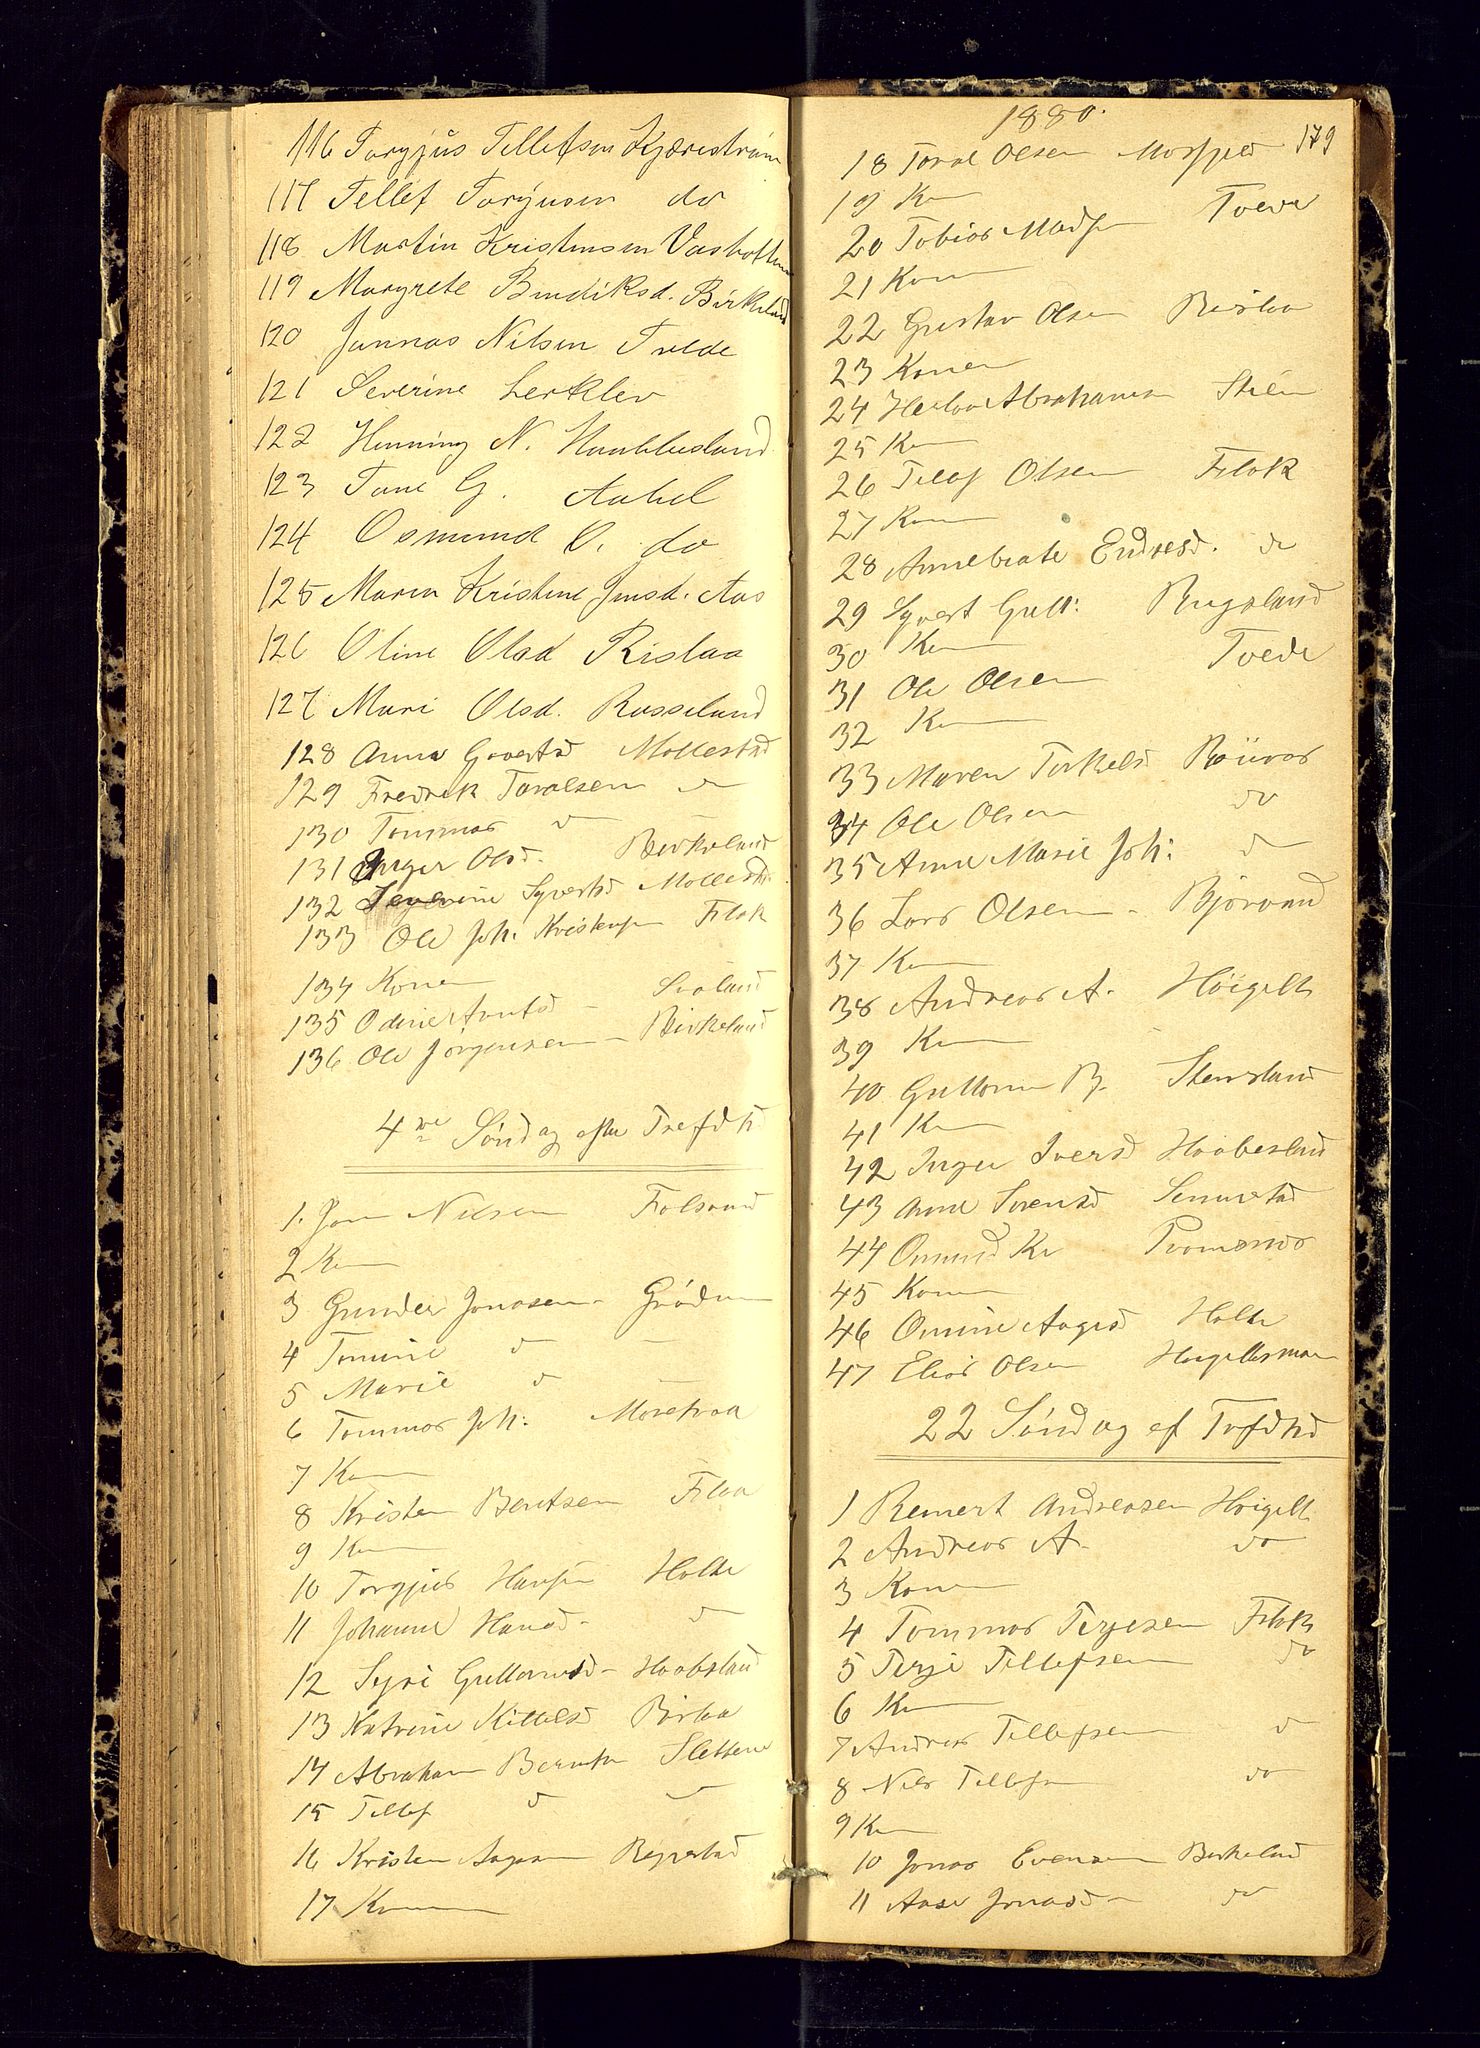 116 Torgjus Tellefsen Kjærestrøm
117 Tellef Torgjusen do
118 Martin Kristensen Vashotten
119 Margrete Bendiksd. Birkeland
120 Jonnas Nilsen Tvede
121 Severine Lerklev
122 Henning N. Haabbesland
123 Tone G. Aabel
124 Osmund O. do
125 Maren Kristine Jensd. Aas
126 Oline Olsd Rislaa
127 Mari Olsd. Rosseland
128 Anne Govertsd Mollestad
129 Fredrik Taralsen do
130 Tommas do
131 Inger Olsd. Birkeland
132 Severine Syvertsd Mollestad
133 Ole Joh. Kristensen Flak
134 Konen
135 Odine Arntsd Svaland
136 Ole Jørgensen Birkeland
4de Søndag efter Trefdhd
1. Jon Nilsen Folsvand
2 Kn
3 Gunder Jonasen Grødum
4 Tomine do
5 Marie do
6 Tommas Joh. Moretraa
7 Kn
8 Kristen Bentsen Flaa
9 Kn
10 Torgjus Hansen Holte
11 Johanne Hansd do
12 Syri Guttormsd Haabesland
13 Katrine Kittelsd Rislaa
14 Abraham Berntsen Slettene
15 Tellef do
16 Kristen Aagesen Repestad
17 Konen
1880.
179
18 Taral Olsen Mosfjeld
19 Kn
20 Tobias Madsen Tvede
21 Konen
22 Gustav Olsen Rislaa
23 Konen
24 Abrahamsen Stien
25 Kn
26 Tellef Olsen Flak
27 Kn
28 Annebeate Endresd. do
29 Syvert Gutt: Rugsland
30 Kn
31 Ole Olsen Tvede
32 Kn
33 Maren Terkelsd Røinaas
34 Ole Olsen do
35 Anne Marie Joh: do
36 Lars Olsen Bjorvand
37 Kn
38 Andreas A. Høigilt
39 Kn
40 Guttorm B. Stensland
41 Kn
42 Inger Iversd Haabesland
43 Anne Sorensd Senumstad
44 Omund Kr
45 Konen
46 Omine Aagesd Holte
47 Elias Olsen Høigiltsmoen
22 Søndag ef Trefdhd
1 Reinert Andreasen Høigilt
2 Andreas A. do
3 Konen
4 Tommas Terjesen Flak
5 Terje Tellefsen do
6 Kn
7 Andreas Tellefsen do
8 Nils Tellefsen do
9 Kn
10 Jonas Evensen Birkeland
11 Aase Jonasd do